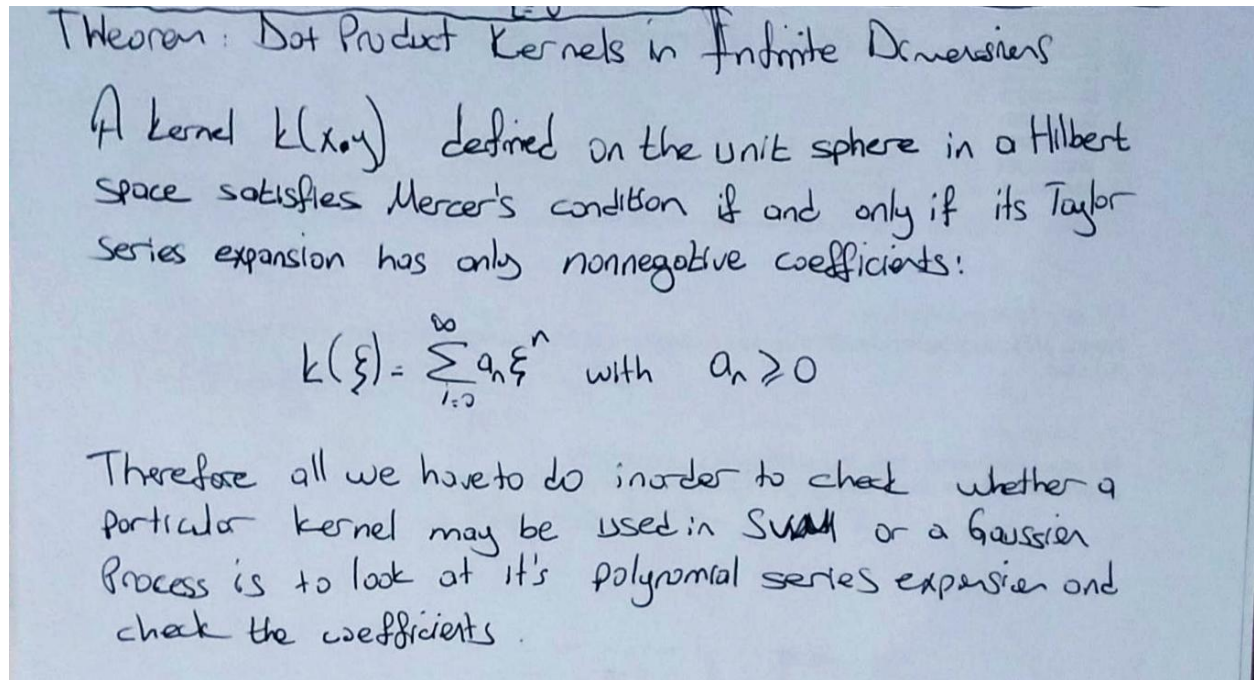 Theorem: Dot Product Kernels in Infinite Dimensions
A kernel k(x.y) defined on the unit sphere in a Hilbert
space satisfies Mercer's condition if and only if its Taylor
series expansion has only nonnegative coefficients:
k(ξ) = ∑_{i=0}^{∞} a_n ξ^n with a_n ⩾ 0
Therefore all we have to do inorder to check whether a
particular kernel may be used in or a Gaussian
Process is to look at it's polynomial series expansion and
check the coefficients.